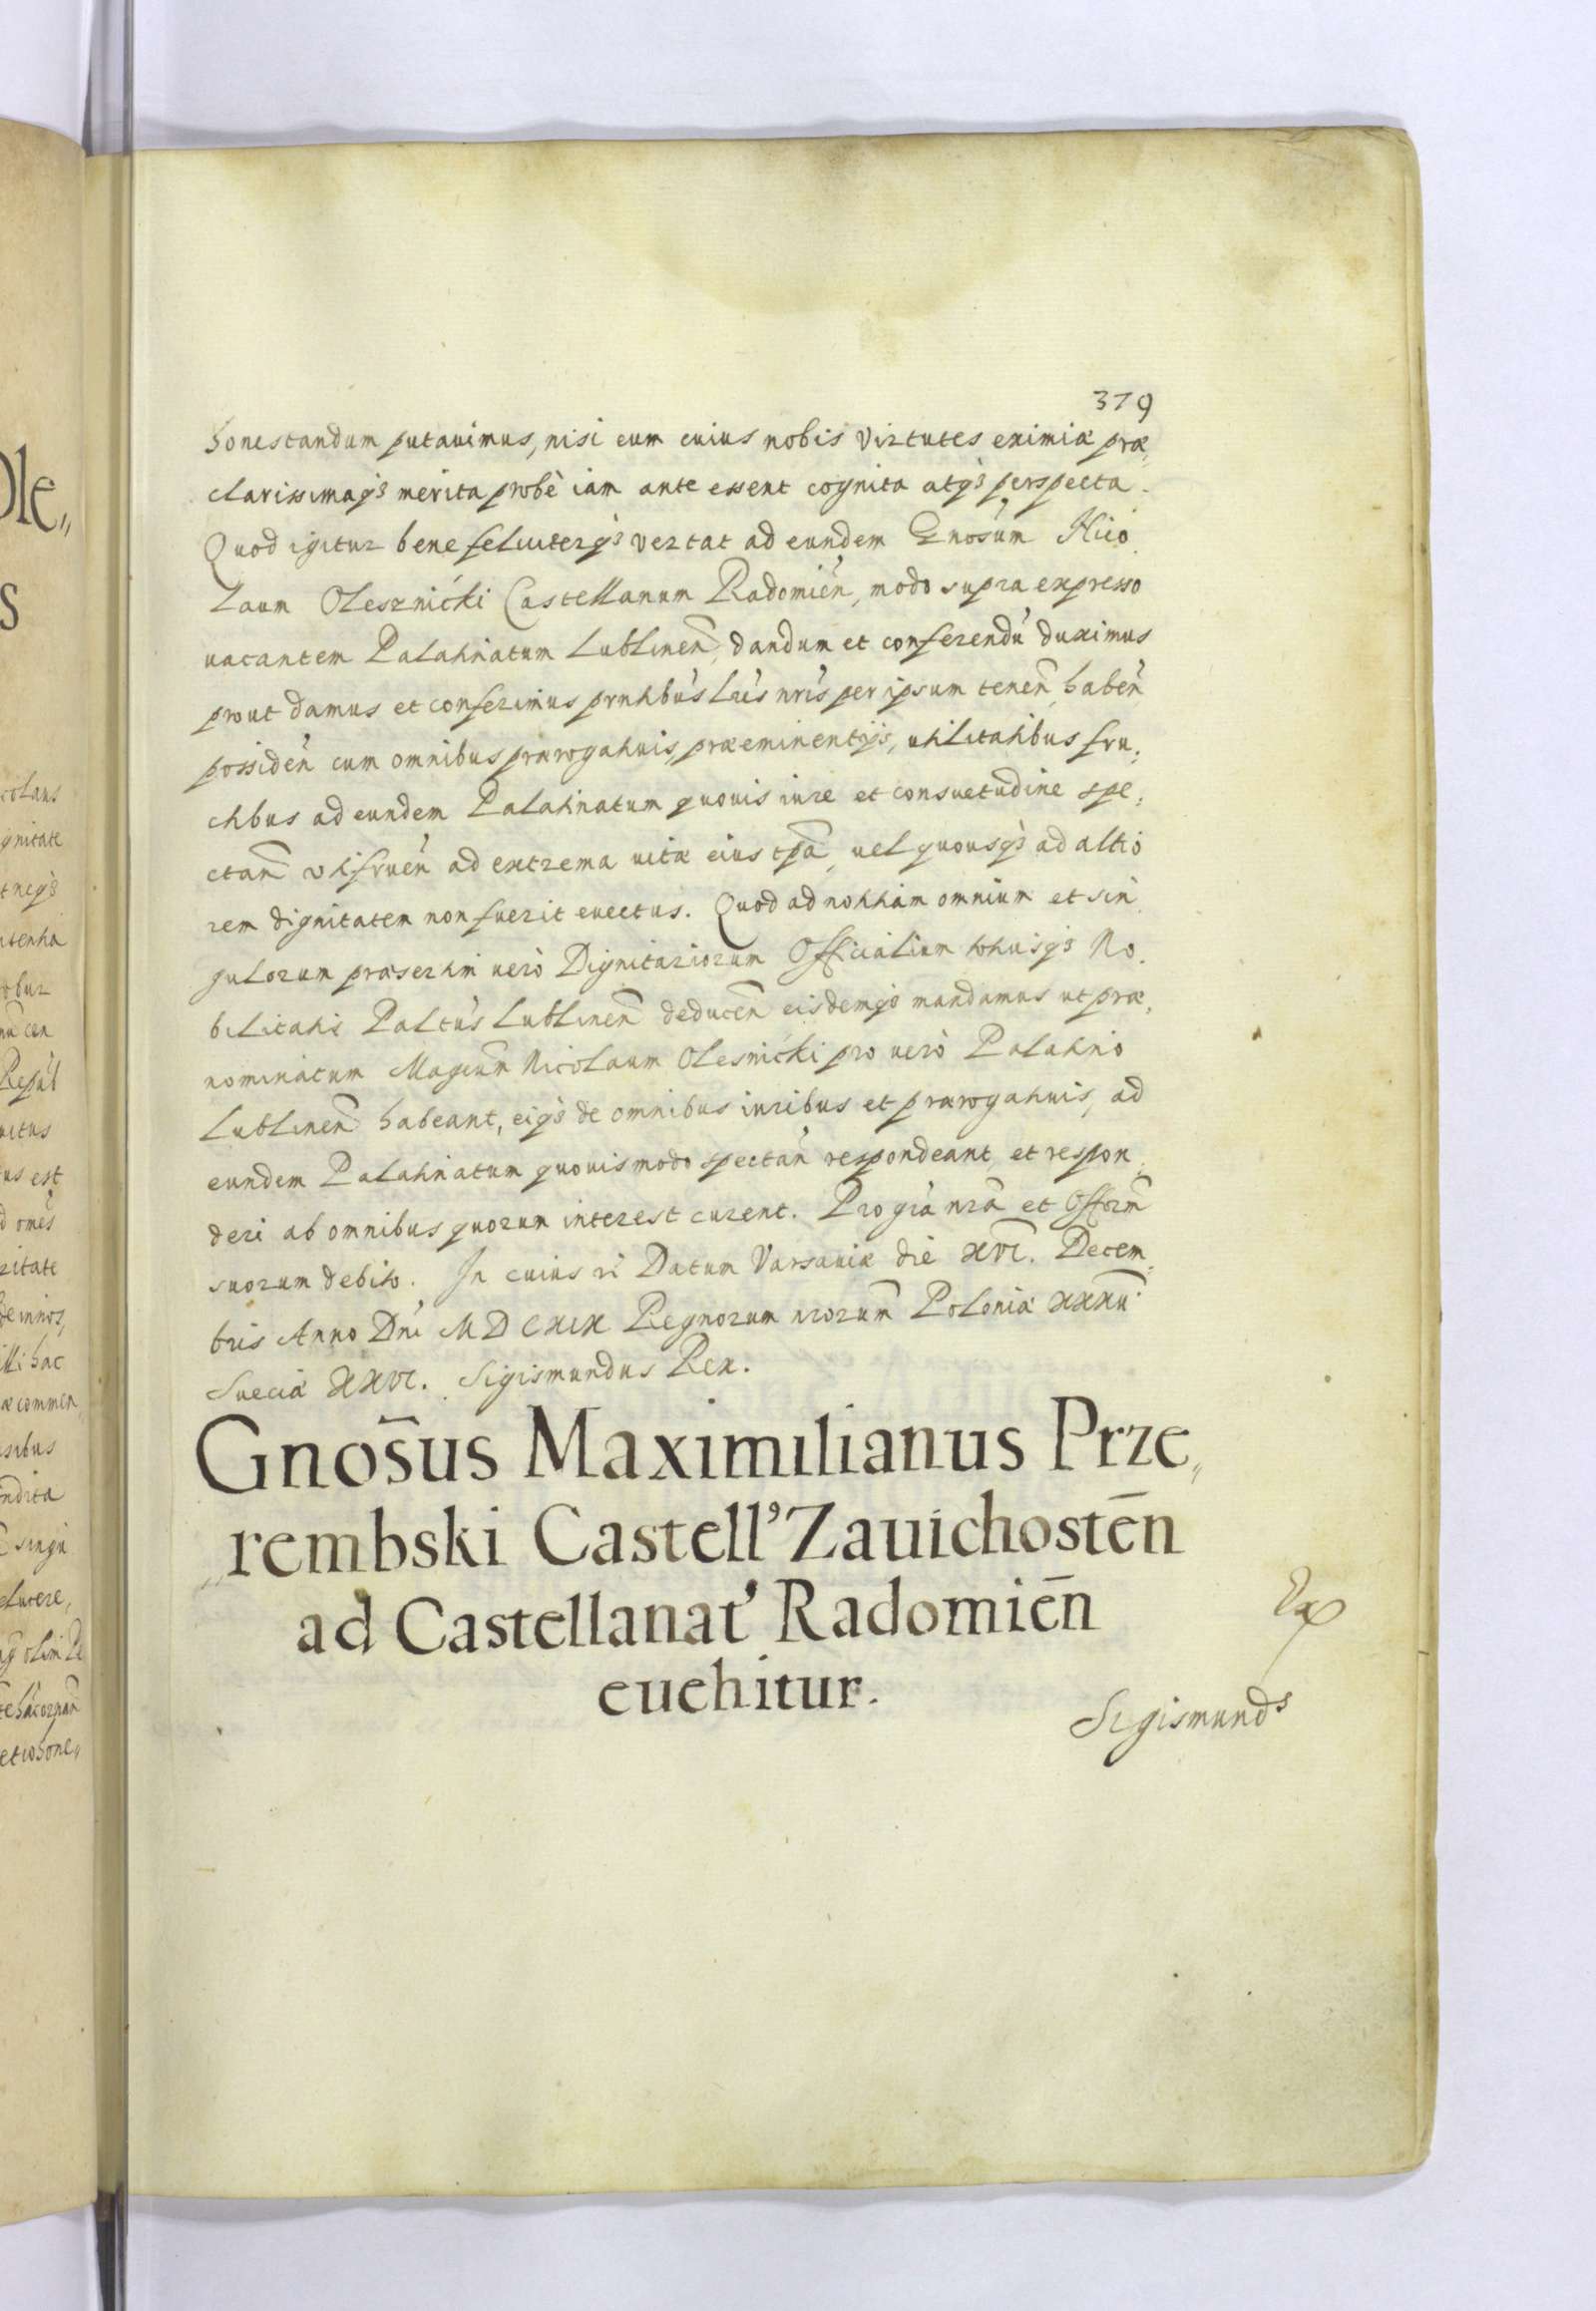 379
honestandum putauimus, nisi eum cuius nobis virtutes eximiæ præ,
clarissimaq3 merita probè iam ante essent cognita atq3 perspecta.
Quod igitur bene feliciterq3 vertat ad eundem Gnosum Nico,
laum Olesznicki Castellanum Radomien̄, modo supra expresso
uacantem Palatinatum Lublinen̄, dandum et conferendū duximus
prout damus et conferimus prntibus Lris nris per ipsum tenen̄, haben̄
possiden̄ cum omnibus prærogatiuis, præeminentijs, utilitatibus fru,
ctibus ad eundem Palatinatum quouis iure et consuetudine spe,
ctan̄ utifruen̄ ad extrema uitæ eius tpa, uel quousq3 ad altio
rem dignitatem non fuerit euectus. Quod ad notitiam omnium et sin
gulorum præsertim uerò Dignitariorum Officialium totiusq3 No,
bilitatis Paltus Lublinen̄ deducen̄ eisdemq3 mandamus ut præ,
nominatum Magcum Nicolaum Olesnicki pro uero Palatino
Lublinen̄ habeant, eiq3 de omnibus iuribus et prærogatiuis, ad
eundem Palatinatum quouismodo spectan̄ respondeant et respon,
deri ab omnibus quorum interest curent. Pro gra nra et Ofform
suorum debito. In cuius ri Datum Varsauiæ die XVI. Decem,
bris Anno Dni MDCXIX Regnorum nrorum Poloniæ XXXII
Sueciæ XXVI. Sigismundus Rex.
Gnos̄us Maximilianus Prze,,
,,rembski Castell' Zauichostēn
ad Castellanat' Radomiēn
euehitur.
Sigismunds